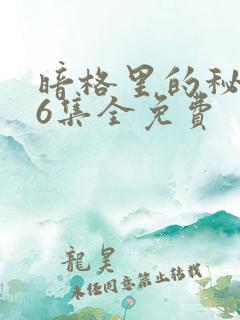 暗格里的秘
6集全免费
龍昊
未经同意禁止转载